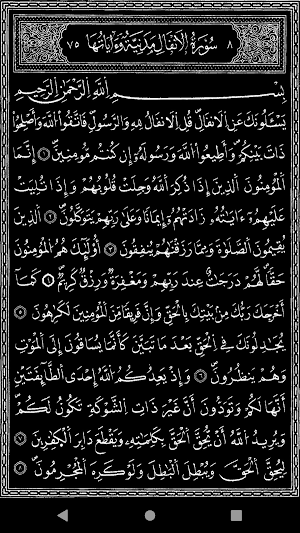 ٨ سُورَةُ الأَنفَالِ مَدَنِيَّةٌ وَءَايَاتُهَا ٧٥
بِسْمِ اللَّهِ الرَّحْمَٰنِ الرَّحِيمِ
يَسْـَٔلُونَكَ عَنِ الْأَنفَالِ قُلِ الْأَنفَالُ لِلَّهِ وَالرَّسُولِ فَاتَّقُوا اللَّهَ وَأَصْلِحُوا
ذَاتَ بَيْنِكُمْ وَأَطِيعُوا اللَّهَ وَرَسُولَهُ إِن كُنتُم مُّؤْمِنِينَ ١ إِنَّمَا
الْمُؤْمِنُونَ الَّذِينَ إِذَا ذُكِرَ اللَّهُ وَجِلَتْ قُلُوبُهُمْ وَإِذَا تُلِيَتْ
عَلَيْهِمْ ءَايَاتُهُ زَادَتْهُمْ إِيمَانًا وَعَلَىٰ رَبِّهِمْ يَتَوَكَّلُونَ ٢ الَّذِينَ
يُقِيمُونَ الصَّلَوٰةَ وَمِمَّا رَزَقْنَٰهُمْ يُنفِقُونَ ٣ أُولَٰئِكَ هُمُ الْمُؤْمِنُونَ
حَقًّا لَّهُمْ دَرَجَٰتٌ عِندَ رَبِّهِمْ وَمَغْفِرَةٌ وَرِزْقٌ كَرِيمٌ ٤ كَمَا
أَخْرَجَكَ رَبُّكَ مِن بَيْتِكَ بِالْحَقِّ وَإِنَّ فَرِيقًا مِّنَ الْمُؤْمِنِينَ لَكَٰرِهُونَ ٥
يُجَٰدِلُونَكَ فِي الْحَقِّ بَعْدَ مَا تَبَيَّنَ كَأَنَّمَا يُسَاقُونَ إِلَى الْمَوْتِ
وَهُمْ يَنظُرُونَ ٦ وَإِذْ يَعِدُكُمُ اللَّهُ إِحْدَى الطَّائِفَتَيْنِ
أَنَّهَا لَكُمْ وَتَوَدُّونَ أَنَّ غَيْرَ ذَاتِ الشَّوْكَةِ تَكُونُ لَكُمْ
وَيُرِيدُ اللَّهُ أَن يُحِقَّ الْحَقَّ بِكَلِمَٰتِهِ وَيَقْطَعَ دَابِرَ الْكَٰفِرِينَ ٧
لِيُحِقَّ الْحَقَّ وَيُبْطِلَ الْبَٰطِلَ وَلَوْ كَرِهَ الْمُجْرِمُونَ ٨